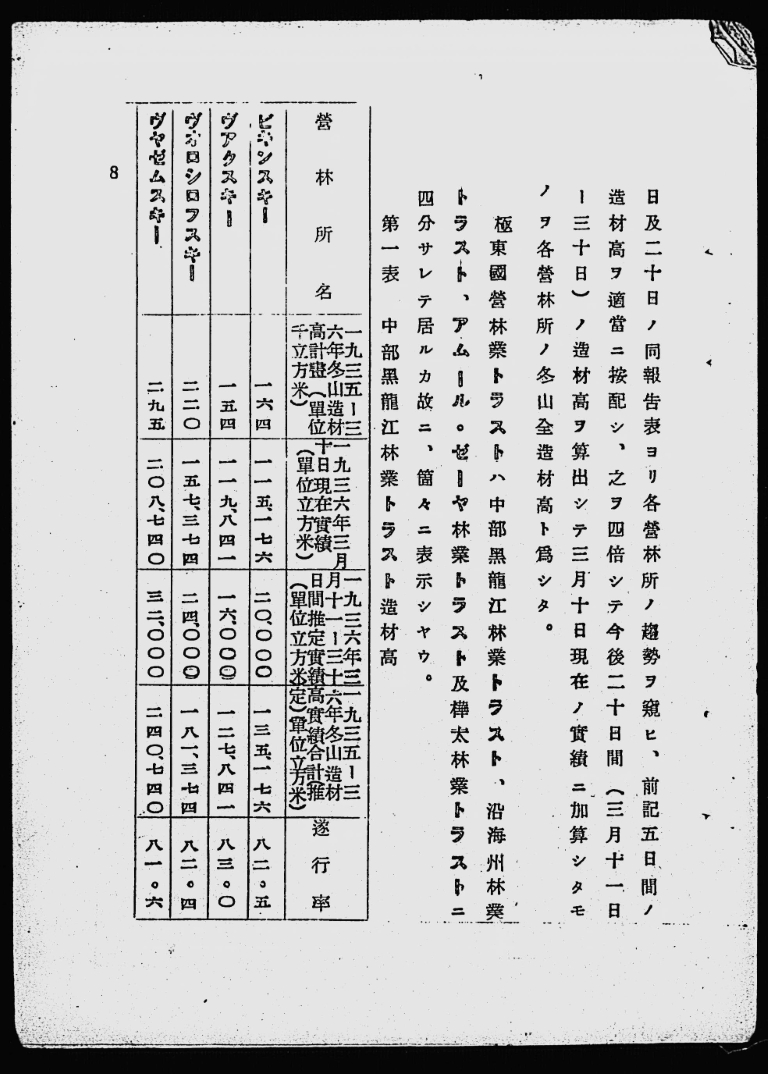 日及二十日ノ同報告表ヨリ各營林所ノ趨勢ヲ窺ヒ、前記五日間ノ
造材高ヲ適當ニ按配シ、之ヲ四倍シテ今後二十日間(三月十一日
ー三十日)ノ造材高ヲ算出シテ三月十日現在ノ實績ニ加算シタモ
ノヲ各營林所ノ冬山全造材高ト爲シタ。
極東國營林業トラストハ中部黑龍江林業トラスト、沿海州林業
トラスト、アムール。ゼーヤ林業トラスト及樺太林業トラストニ
四分サレテ居ルカ故ニ、箇々ニ表示シヤウ。
第一表 中部黑龍江林業トラスト造材高
營林所名
一九三五ー三
六年冬山造材
高計畫(單位
千立方米)
一九三六年三月
十日現在實績
(單位立方米)
一九三六年三
月十一ー三十
日間推定實績
(單位立方米)
一九三五ー三
六年冬山造材
高實績合計(推
定)(單位立方米)
遂行率
ビキンスキー 一六四 一一五、一七六 二〇、〇〇〇 一三五、一七六 八二。五
ヴアクスキー 一五四 一一九、八四一 一六、〇〇〇 一二七、八四一 八三。〇
ヴオロシロフスキー 二二〇 一五七、三七四 二四、〇〇〇 一八一、三七四 八二。四
ヴヤゼムスキー 二九五 二〇八、七四〇 三二、〇〇〇 二四〇、七四〇 八一。六
8